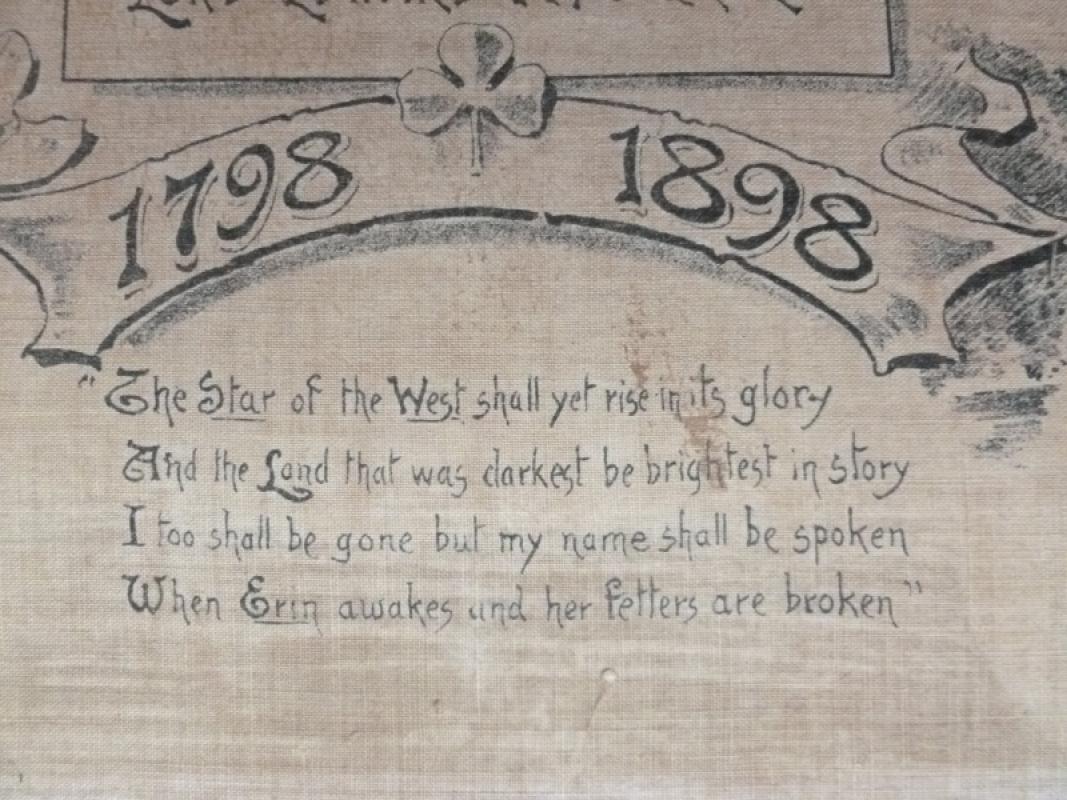 1798 1898
"The Star of the West shall yet rise in its glory
And the Land that was darkest be brightest in story
I too shall be gone but my name shall be spoken
When Erin awakes and her fetters are broken"